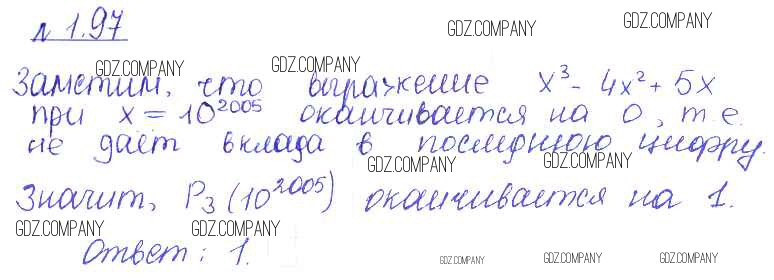 № 1.97
GDZ.COMPANY GDZ.COMPANY
GDZ.COMPANY GDZ.COMPANY
Заметим, что выражение x³ - 4x² + 5x
при x = 10²⁰⁰⁵ оканчивается на 0, т.е.
не даёт вклада в последнюю цифру.
GDZ.COMPANY GDZ.COMPANY
Значит, P₃(10²⁰⁰⁵) оканчивается на 1.
GDZ.COMPANY GDZ.COMPANY
Ответ: 1.
GDZ.COMPANY GDZ.COMPANY GDZ.COMPANY